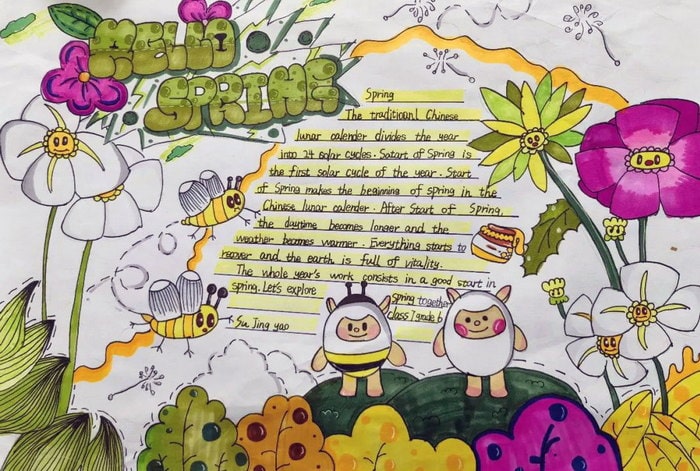 HELLO
SPRING
Spring
The traditioanl Chinese
lunar calender divides the year
into 24 solar cycles. Satart of Spring is
the first solar cycle of the year. Start
of Spring makes the beginning of spring in the
Chinese lunar calender. After Start of Spring,
the daytime becomes longer and the
weather becomes warmer. Everything starts to
recover and the earth is full of vitality.
The whole year's work consists in a good start in
spring. Let's explore spring together
Su Jing yao class 1 grade 6